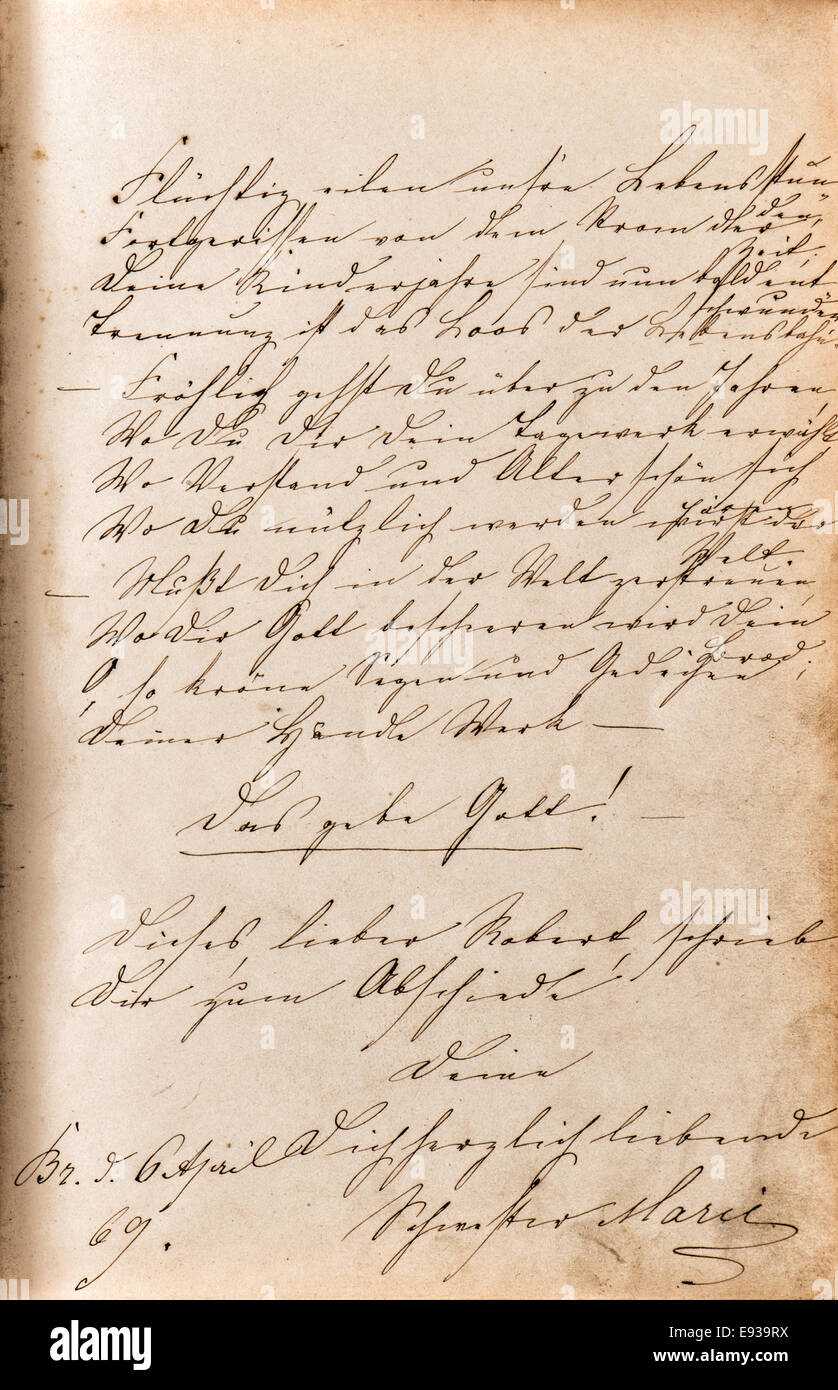 Flüchtig eilen unsre Lebensstun
den,
Fortgerissen von dem Strom der
Zeit;
Deine Kinderjahre sind nun bald ent
schwunden
Trennung ist das Loos der Lebensbahn.
— Fröhlich gehst Du über zu den Jahren,
Wo Du Dir Dein Tagewerk erwählt
Wo Verstand und Alter schön sich
paaren
Wo Du nützlich werden wirst der
Welt.
— Mußt Dich in der Welt zerstreuen,
Wo Dir Gott bescheeren wird Dein
Brod;
O, so kröne Segen und Gedeihen
Deiner Hände Werk —
Das gebe Gott! —
Dieses, lieber Robert, schrieb
Dir zum Abschiede
Deine
Dich herzlich liebende
Br. d. 6 April
69.
Schwester Marie
alamy
E939RX
www.alamy.com